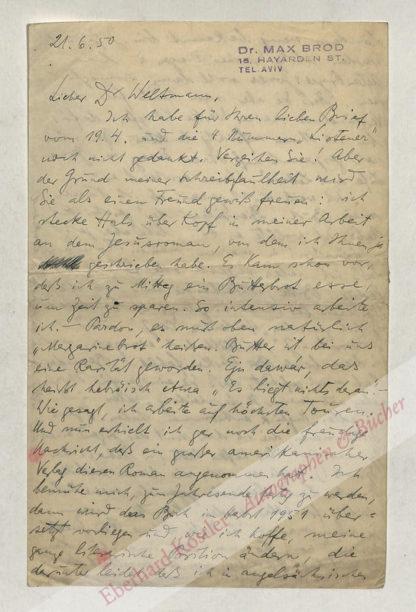 21.6.50
Dr. MAX BROD
16, HAYARDEN ST.
TEL AVIV
Lieber Dr. Weltmann,
Ich habe für Ihren lieben Brief
vom 19.4. und die 4 Nummern
noch nicht gedankt. Verzeihen Sie! Aber
der Grund meiner Schreibfaulheit wird
Sie als einen Freund gewiß freuen: ich
stecke Hals über Kopf in meiner Arbeit
an dem Jesusroman, von dem ich Ihnen ja
geschrieben habe. Es kam schon vor,
daß ich zu Mittag ein Butterbrot esse,
um Zeit zu sparen. So intensiv arbeite
ich. – Pardon, es muß oben natürlich
„Margarinebrot“ heißen. Butter ist bei uns
eine Rarität geworden. Ejn dawar, das
heißt hebräisch etwa „Es liegt nichts daran.“ –
Wie gesagt, ich arbeite auf höchsten Touren.
Und nun erhielt ich gar noch die freudige
Nachricht, daß ein großer amerikanischer
Verlag diesen Roman angenommen hat. Ich
bemühe mich, zum Jahresende fertig zu werden,
dann wird das Buch im Jahre 1951 über-
setzt vorliegen und, wie ich hoffe, meine
ganze literarische Position ändern, die
darunter leidet, daß ich in angelsächsischen
Eberhard Köstler Autographen & Bücher